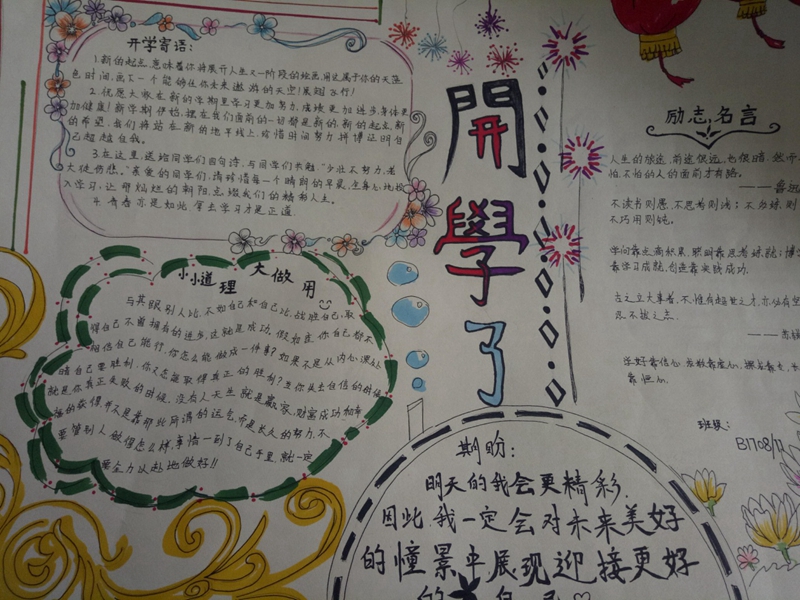 开学寄语:
1.新的起点,意味着你将展开人生又一阶段的绘画,用这属于你的天蓝
色时间,画下一个能够任你未来遨游的天空!展翅飞行!
2.优愿大家在新的学期里学习更加努力,成绩更加进步,身体更
加健康!新学期伊始,摆在我们面前的一切都是新的,新的起点,新
的希望,我们将站在新的地平线上,珍惜时间努力拼博证明自
己超越自我。
3.在这里,送给同学们四句诗,与同学们共勉:"少壮不努力,老
大徒伤悲。"亲爱的同学们,请珍惜每一个晴朗的早晨,全身心地投
入学习,让那灿烂的朝阳
4.青春亦是如此,拿去学习才是正道.
小小道理 大做用
与其跟别人比,不如自己和自己比,战胜自己,取
得自己不曾拥有的进步,这就是成功。假如连你自己都不
相信自己能行,你怎么能做成一件事?如果不是从内心深处
暗自己要胜利,你又怎能取得真正的胜利?当你失去自信的时候
就是你真正失败的时候。没有人天生就是赢家,财富成功和幸
福的获得,并不是靠那些所谓的运气,而是长久的努力,不
要管别人做得怎么样,事情一到了自己手里,就一定
要全力以赴地做好!!
開
學
了
励志名言
人生的旅途,前途很远,也很暗,然而
怕,不怕的人的面前才有路。
——鲁迅
不读书则愚,不思考则浅;不多练则
不巧用则钝。
学问靠点滴积累,
创造靠实践成功.
古之立大事者,不惟有超世之才,亦必有坚
忍不拔之志.
班级:
B1708/
期盼:
明天的我会更精彩,
因此,我一定会对未来美好
的憧景中展现迎接更好
的